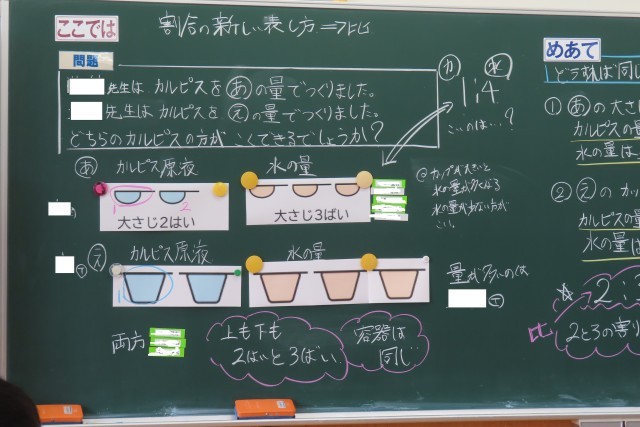 ここでは
割合の新しい表し方⇒比
問題
先生は カルピスを あ の量でつくりました。
先生は カルピスを え の量でつくりました。
どちらのカルピスの方が こくできるでしょうか?
カ 水
1:4
こいのは…?
あ カルピス原液 水の量
1 2
大さじ2はい
大さじ3ばい
カップが大きいと
水の量が多くなる
水の量が少ない方が
こい。
え カルピス原液 水の量
量が多いのは
両方
上も下も
2はいと3ばい
容器は
同じ
めあて
どうすれば同じ
① あ の大さ
カルピスの量
水の量は
② え のカッ
カルピスの量
水の量は
☆ 2:3
比
2と3の割